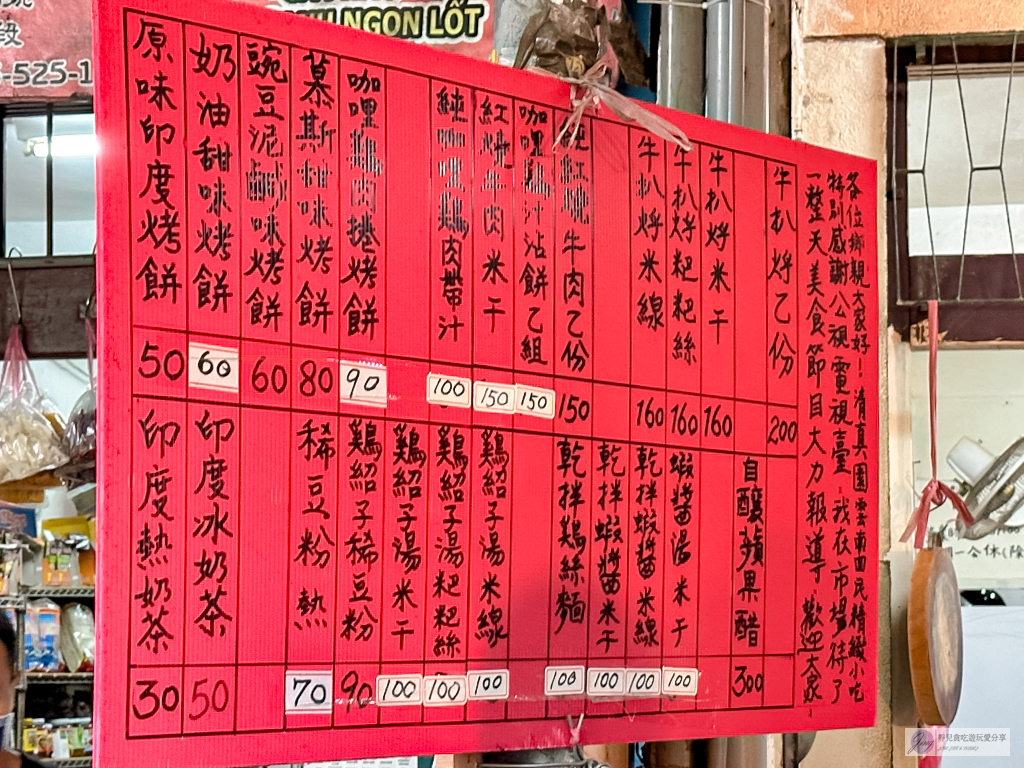 NGON LỐT
段
525-1
各位鄉親大家好！清真園雲南回民精緻小吃
特別感謝公視電視臺 我在市場待了
一整天美食節目大力報導、歡迎大家、
牛扒烀乙份 200
牛扒烀米干 160
牛扒烀粑粑絲 160
牛扒烀米線 160
純紅燒牛肉乙份 150
咖哩鷄汁沾餅乙組 150
紅燒牛肉米干 150
純咖哩鷄肉帶汁 100
咖哩鷄肉捲烤餅 90
慕斯甜味烤餅 80
豌豆泥鹹味烤餅 60
奶油甜味烤餅 60
原味印度烤餅 50
自釀蘋果醋 300
蝦醬湯米干 100
乾拌蝦醬米線 100
乾拌蝦醬米干 100
乾拌鷄絲麵 100
鷄紹子湯米線 100
鷄紹子湯粑粑絲 100
鷄紹子湯米干 100
鷄紹子稀豆粉 90
稀豆粉 熱 70
印度冰奶茶 50
印度熱奶茶 30
胖兒貪吃遊玩愛分享